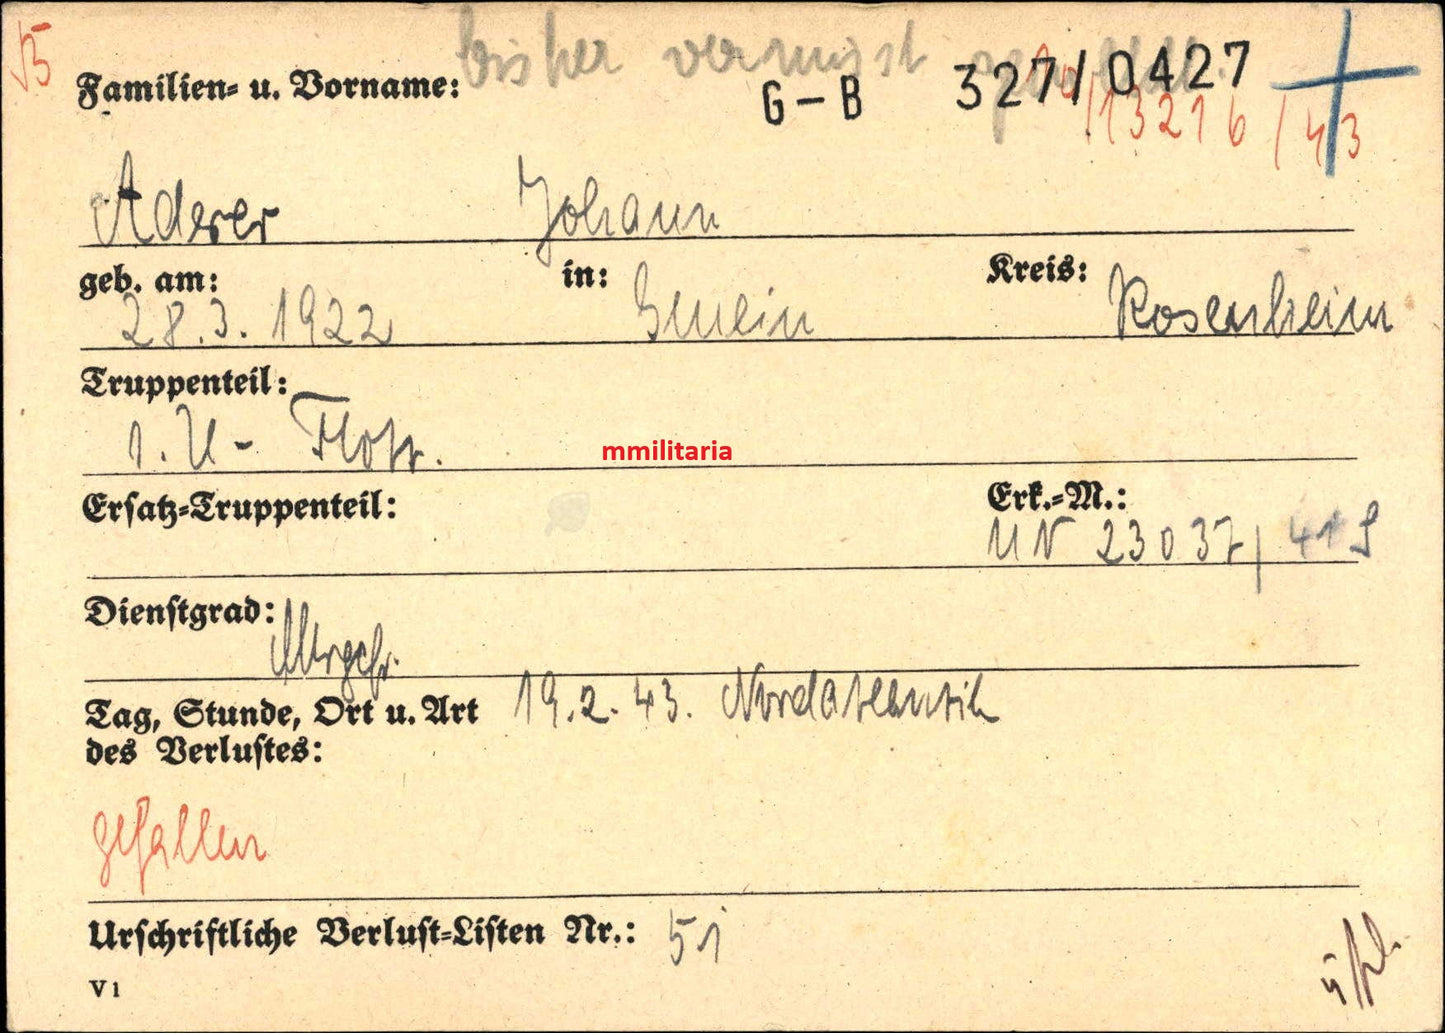 bisher vermisst
Familien- u. Vorname:
G-B 327/0427
/13216/43
Aderer Johann
geb. am: in: Kreis:
28.3.1922 Rosenheim
Truppenteil:
1. U- Flott.
mmilitaria
Ersatz-Truppenteil: Erk.-M.:
UN 23037/41 S
Dienstgrad:
Mtrgefr.
Tag, Stunde, Ort u. Art 19.2.43. Nordatlantik
des Verlustes:
gefallen
Urschriftliche Verlust-Listen Nr.: 51
V 1